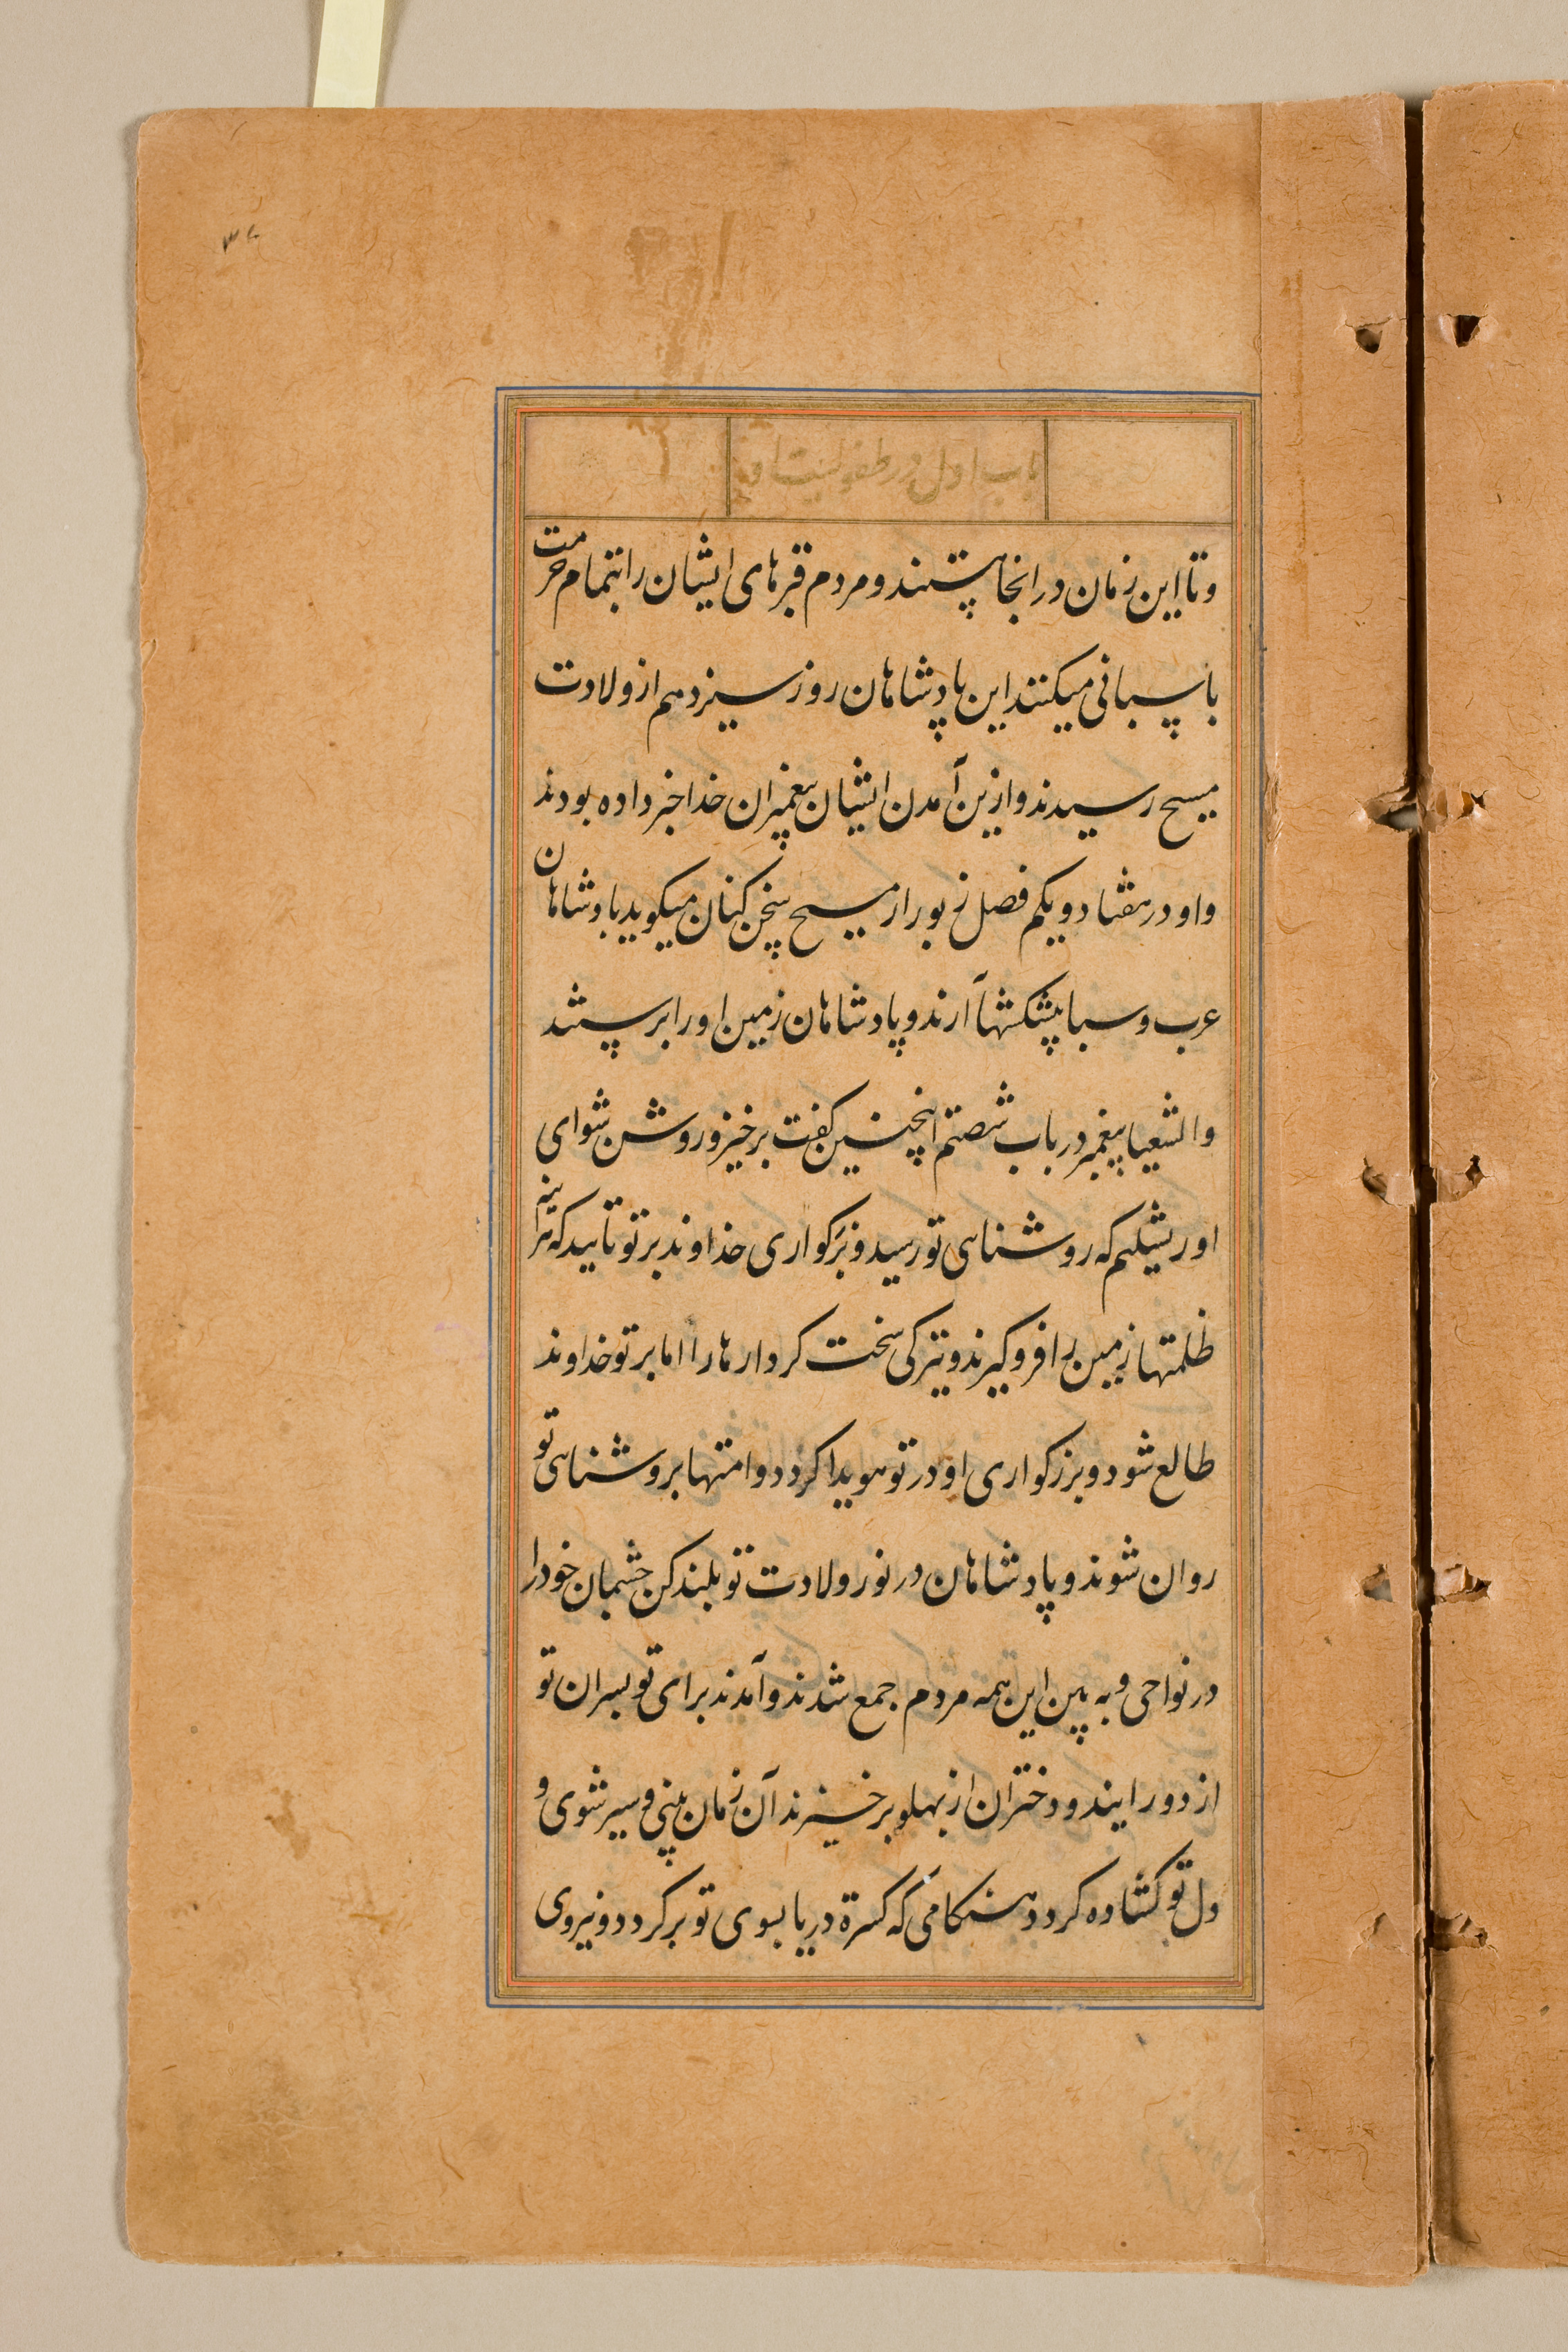 ۳۷
باب اول در طفولیت او
و تا این زمان در انجا هستند و مردم قبرهای ایشان را بتمام حرمت
پاسبانی میکنند این پادشاهان روز سیزدهم از ولادت
مسیح رسیدند و ازین آمدن ایشان پیغمبران خدا خبر داده بودند
داود در هفتاد و یکم فصل زبور از مسیح سخن کنان میکوید پادشاهان
عرب و سبا پیشکشها آرند و پادشاهان زمین او را پرستند
و اشعیا پیغمبر در باب شصتم اینچنین کفت برخیز و روشن شو ای
اورشیلیم که روشنای تو رسید و بزرکواری خداوند بر تو تابید که هراینه
ظلمتها زمین را فروکیرند و تیرکی سخت کردارها را اما بر تو خداوند
طالع شود و بزرکواری او در تو هویدا کردد و امتها بروشنای تو
روان شوند و پادشاهان در نور ولادت تو بلند کن چشمان خود را
در نواحی و به بین این همه مردم جمع شدند و آمدند برای تو پسران تو
از دور ایند و دختران از پهلو برخیزند آن زمان بینی و سیر شوی و
دل تو کشاده کردد هنکامی که کثرة دریا بسوی تو برکردد و نیروی